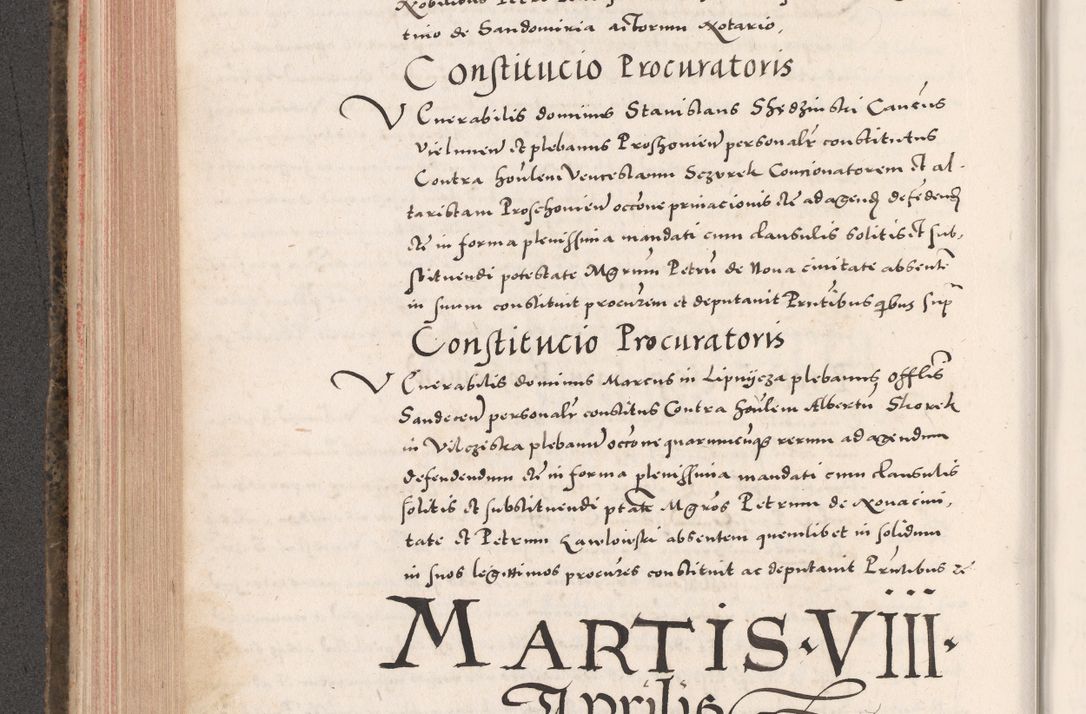 Nobilibus Petro
tinio de Sandomiria actorum Notario,
Constitucio Procuratoris
Venerabilis dominus Stanislaus Skedzinski Cantus
Vielunen et plebanus Proszovien personalr constitutus
Contra honlem Venceslaum Sczurek Concionatorem et al-
taristam Proschovien occone privacionis etc ad agend defedend
etc in forma plenissima mandati cum clausulis solitis et sub,
stituendi potestate Mgrum Petru de Nova civitate absente
in suum constituit procurem et deputavit Prntibus qbus sup
Constitucio Procuratoris
Venerabilis dominus Marcus in Lipnycza plebanus offlis
Sandecen personalr constitus Contra honlem Albertu Skorek
in Vilcziska plebanu occone quarumcuq rerum ad agendum
defendendum etc in forma plenissima mandati cum clausulis
solitis et substituendi ptate Mgros Petrum de Novacivi,
tate et Petrum Zawlowski absentem quemlibet in solidum
in suos legittimos procures constituit ac deputavit Prntibus etc
MARTIS·VIII·
Aprilis